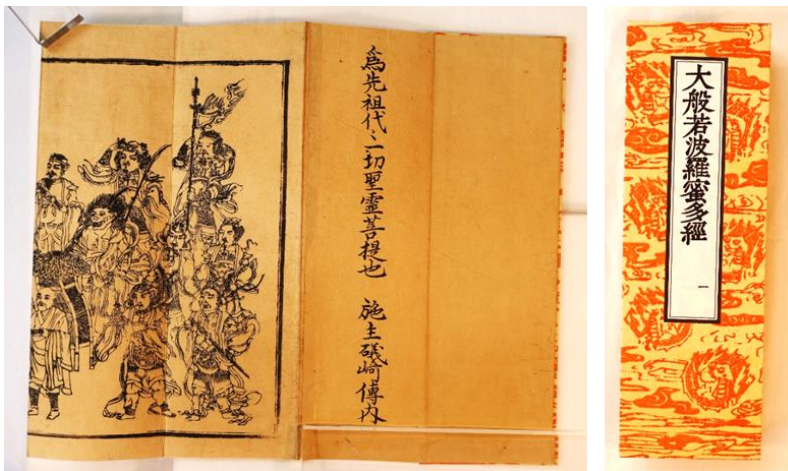 為先祖代〻一切聖霊菩提也 施主礒崎傳内
大般若波羅蜜多經
一